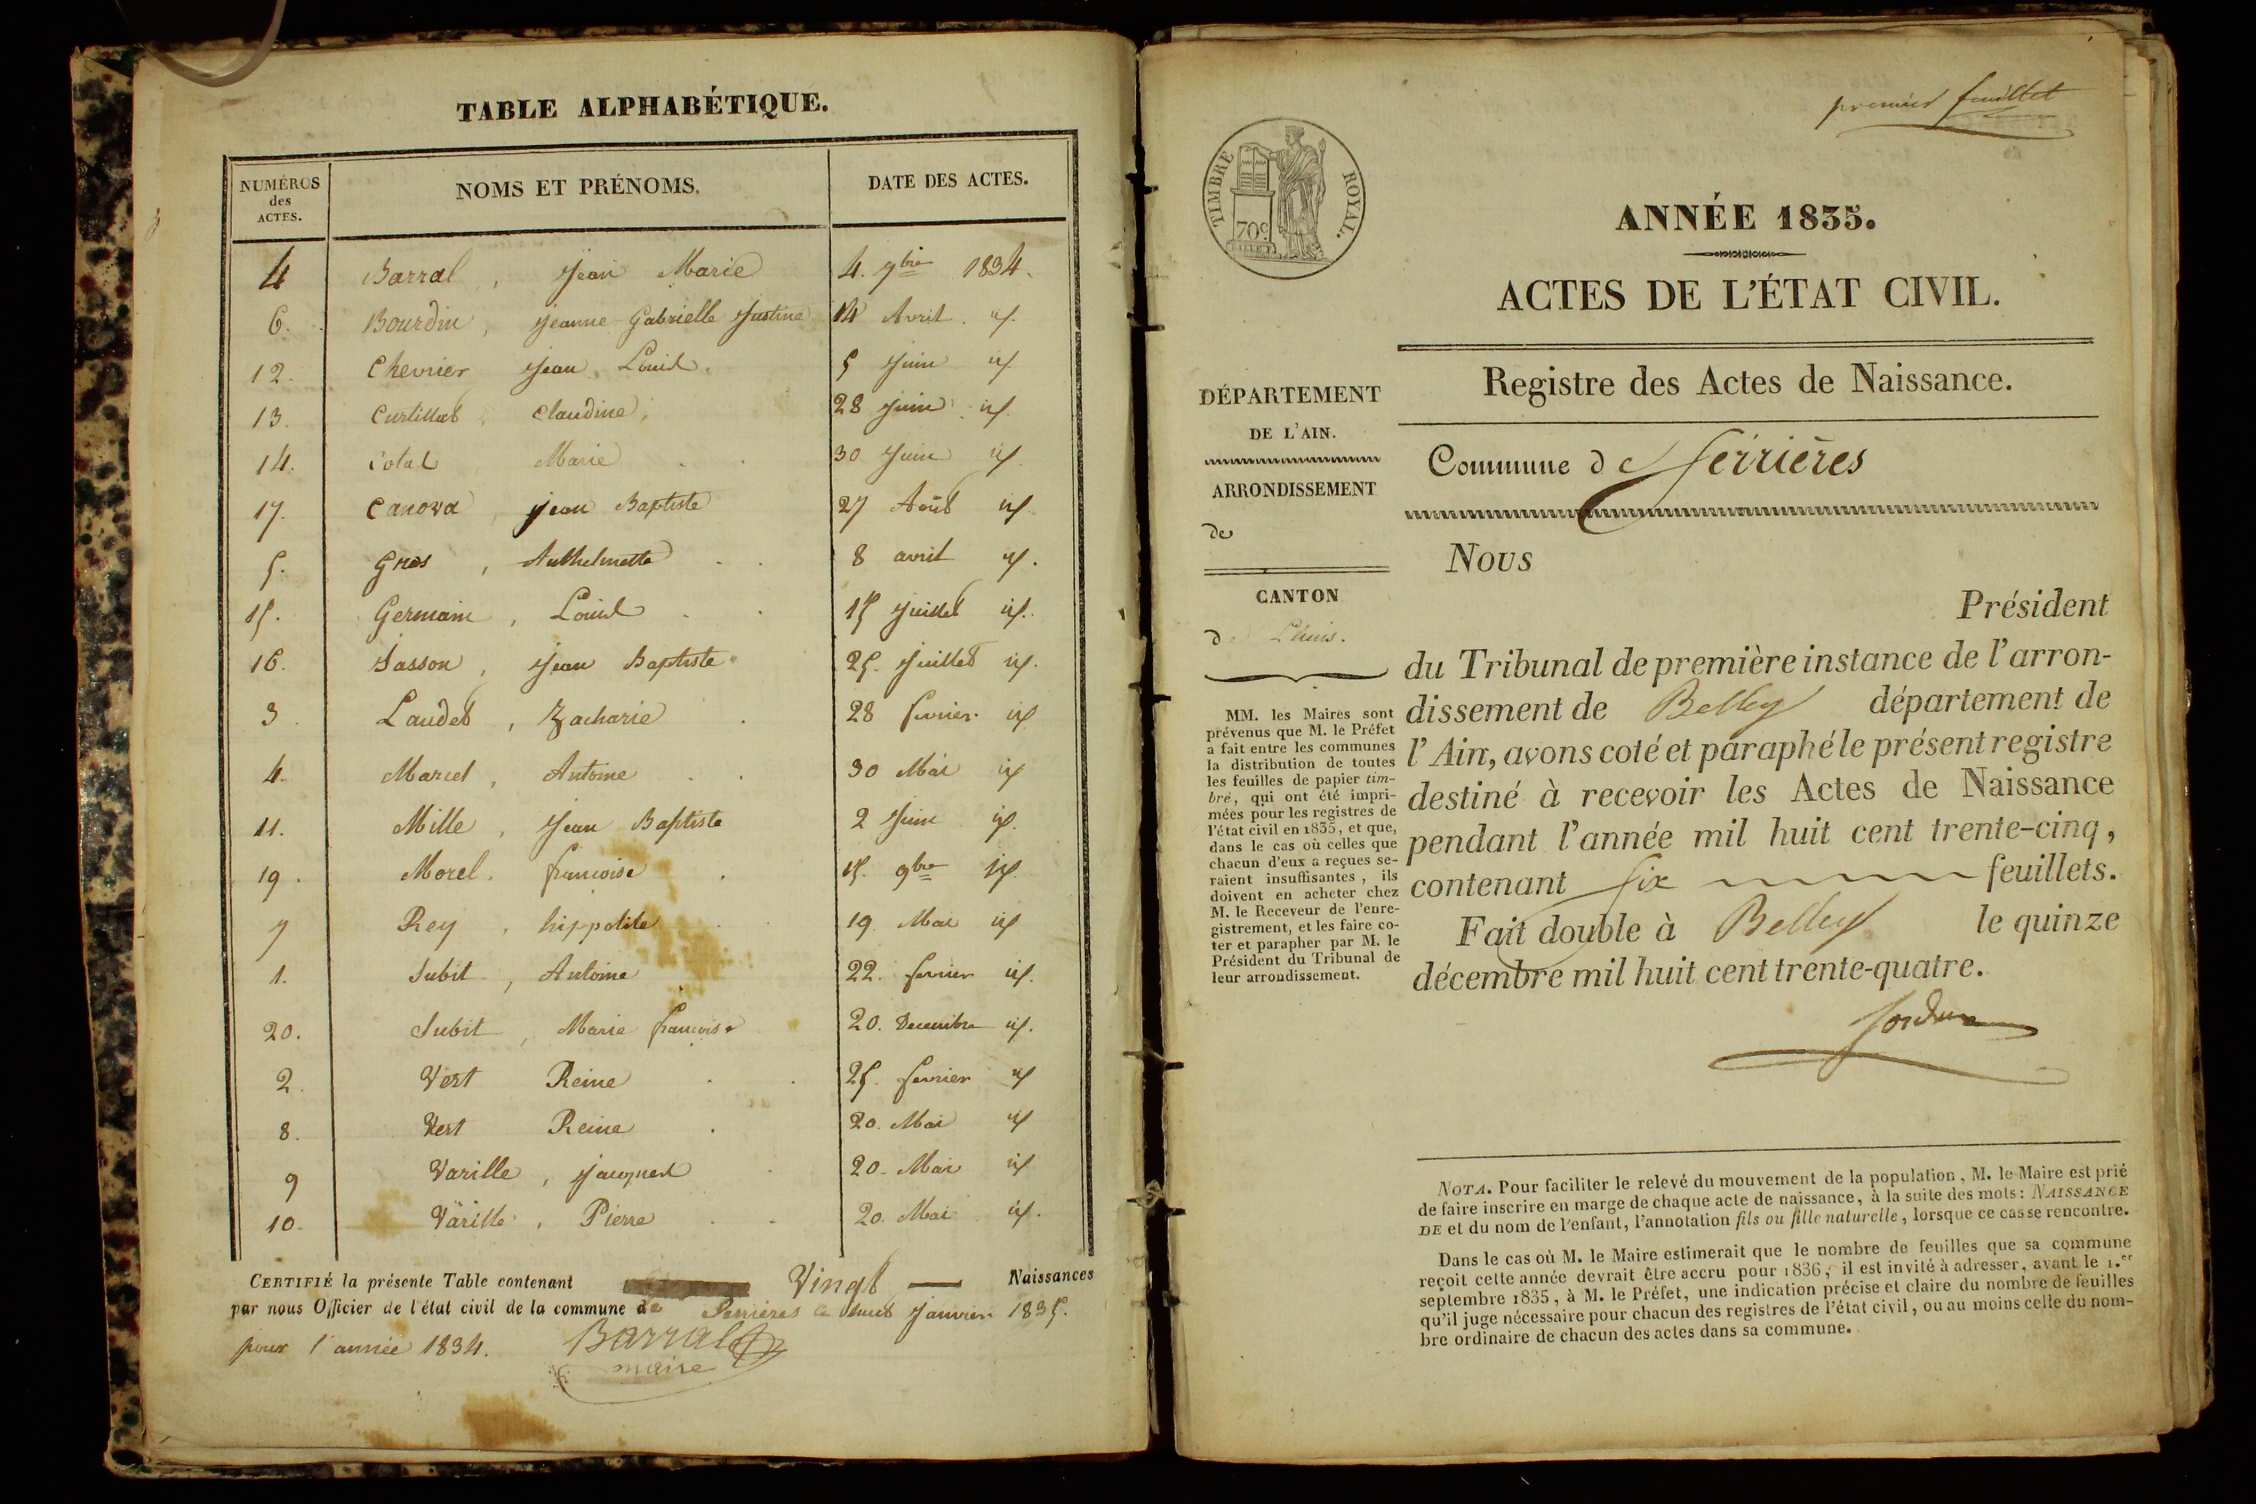 TABLE ALPHABÉTIQUE.
NUMÉROS des ACTES. NOMS ET PRÉNOMS. DATE DES ACTES.
4 Barral, Jean Marie 4. 7bre 1834.
6. Bourdin, Jeanne Gabrielle Justine 14 Avril id.
12. Chevrier Jean Louis. 5 Juin id
13. Curtillat, Claudine, 28 Juin id.
14. Cotat Marie 30 Juin id
17. Canova, Jean Baptiste 27 Août id.
5. Gros, Anthelmette 8 avril id.
15. Germain, Louis 15 Juillet id.
16. Jasson, Jean Baptiste 25. Juillet id.
3. Laudet, Zacharie 28 fevrier id
4. Marcel, Antoine 30 Mai id
11. Mille, Jean Baptiste 2 Juin id.
19. Morel. francoise 15. 9bre id.
7 Rey, hippolite 19 Mai id
1. Subit, Antoine 22. fevrier id.
20. Subit, Marie francoise 20. Decembre id.
2. Vert Reine 25. fevrier id
8. Vert Reine 20. Mai id
9 Varille, Jacques 20. Mai id
10. Varille, Pierre 20. Mai id.
CERTIFIÉ la présente Table contenant Vingt Naissances
par nous Officier de l'état civil de la commune de le huit Janvier 1835.
pour l'année 1834. Barral
maire
premier feuillet
TIMBRE ROYAL.
70c
ANNÉE 1835.
ACTES DE L'ÉTAT CIVIL.
Registre des Actes de Naissance.
DÉPARTEMENT
DE L'AIN.
ARRONDISSEMENT
de
CANTON
de Lhuis.
MM. les Maires sont
prévenus que M. le Préfet
a fait entre les communes
la distribution de toutes
les feuilles de papier tim-
bré, qui ont été impri-
mées pour les registres de
l'état civil en 1835, et que,
dans le cas où celles que
chacun d'eux a reçues se-
raient insuffisantes, ils
doivent en acheter chez
M. le Receveur de l'enre-
gistrement, et les faire co-
ter et parapher par M. le
Président du Tribunal de
leur arrondissement.
Commune d
Nous
Président
du Tribunal de première instance de l'arron-
dissement de Belley département de
l'Ain, avons coté et paraphé le présent registre
destiné à recevoir les Actes de Naissance
pendant l'année mil huit cent trente-cinq,
contenant six feuillets.
Fait double à Belley le quinze
décembre mil huit cent trente-quatre.
NOTA. Pour faciliter le relevé du mouvement de la population, M. le Maire est prié
de faire inscrire en marge de chaque acte de naissance, à la suite des mots: NAISSANCE
DE et du nom de l'enfant, l'annotation fils ou fille naturelle, lorsque ce cas se rencontre.
Dans le cas où M. le Maire estimerait que le nombre de feuilles que sa commune
reçoit cette année devrait être accru pour 1836, il est invité à adresser, avant le 1.er
septembre 1835, à M. le Préfet, une indication précise et claire du nombre de feuilles
qu'il juge nécessaire pour chacun des registres de l'état civil, ou au moins celle du nom-
bre ordinaire de chacun des actes dans sa commune.